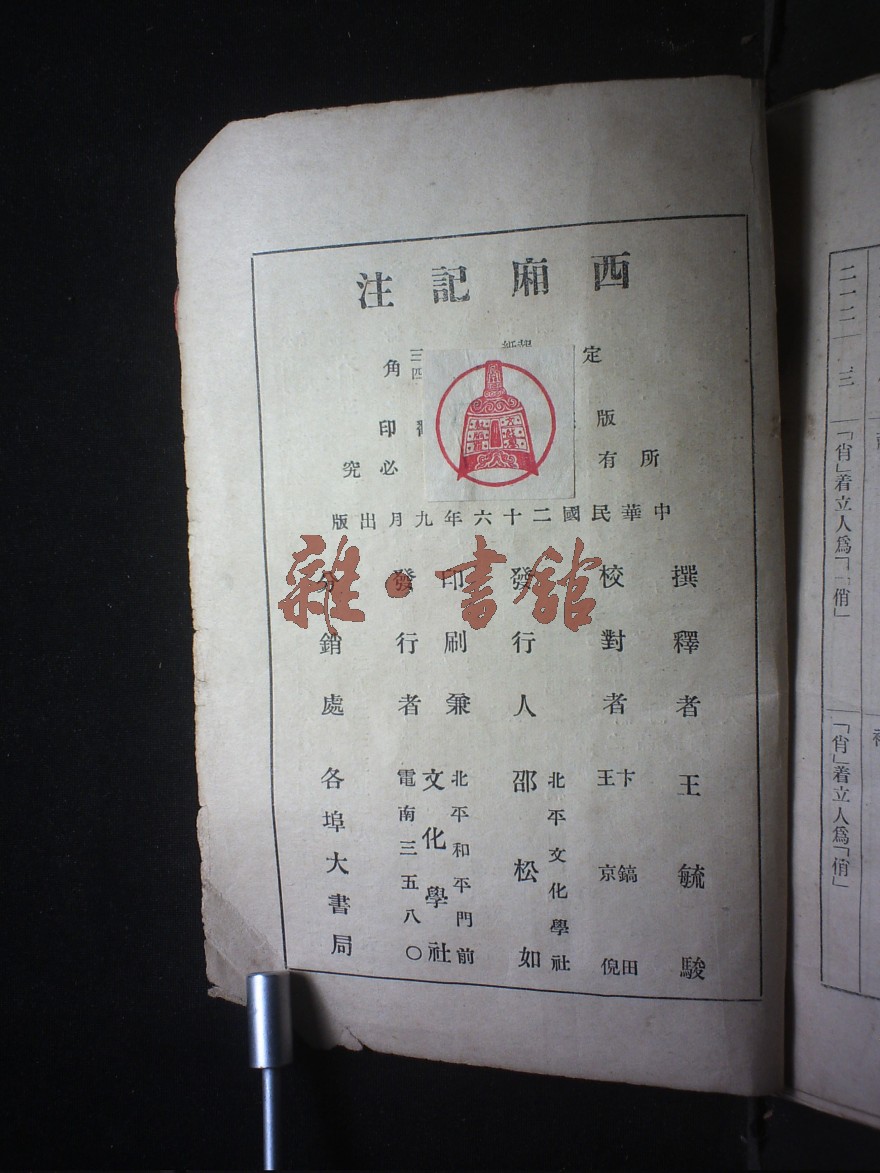 西廂記注
定
角
三
四
版
印
所有
必究
中華民國二十六年九月出版
撰釋者 王毓駿
校對者 卞鎬田
王京倪
發行人 北平文化學社
邵松如
印刷兼發行者 北平和平門前
文化學社
電南三五八〇
分銷處 各埠大書局
雜·書館
二一二 三
「肖」着立人爲「俏」
「肖」着立人爲「俏」